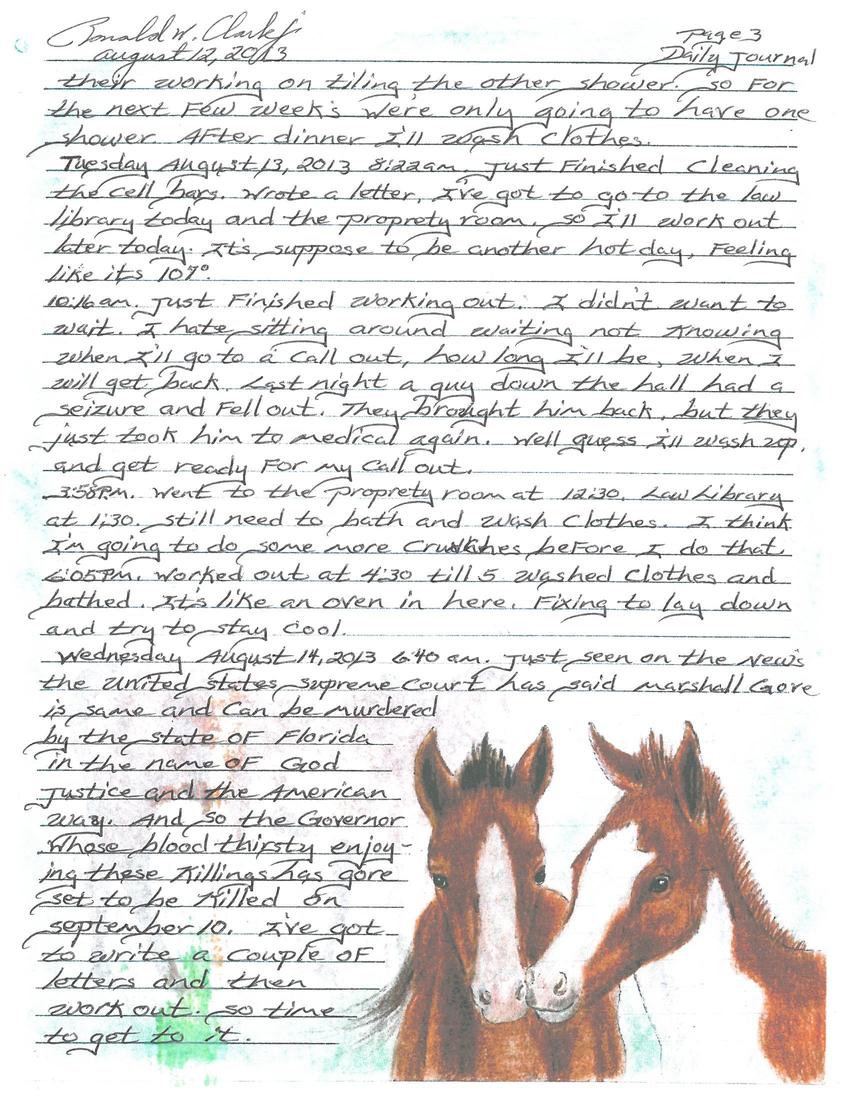 Ronald W. Clark Jr Page 3
August 12, 2013 Daily Journal
their working on tiling the other shower. so For
the next Few week's we're only going to have one
shower. AFter dinner I'll wash clothes.
Tuesday August 13, 2013 8:22am. Just Finished Cleaning
the cell bars. Wrote a letter, I've got to go to the law
library today and the proprety room. so I'll work out
later today. It's suppose to be another hot day, Feeling
like its 107°.
10:16am. Just Finished working out. I didn't want to
wait. I hate sitting around waiting not Knowing
when I'll go to a call out, how long I'll be, when I
will get back. Last night a guy down the hall had a
seizure and Fell out. They brought him back, but they
just took him to medical again. Well guess I'll wash up,
and get ready For my call out.
3:58pm. Went to the proprety room at 12:30. Law Library
at 1:30. still need to bath and wash Clothes. I think
I'm going to do some more Crunches beFore I do that.
6:05pm. Worked out at 4:30 till 5. Washed Clothes and
bathed. It's like an oven in here. Fixing to lay down
and try to stay Cool.
Wednesday August 14, 2013 6:40 am. Just seen on the New's
the United states supreme Court has said marshall Gore
is same and Can be murdered
by the state OF Florida
in the name OF God
Justice and the American
way. And so the Governor
Whose blood thirsty enjoy-
ing these Killings has gore
set to be Killed on
september 10. I've got
to write a couple OF
letters and then
work out. so time
to get to it.